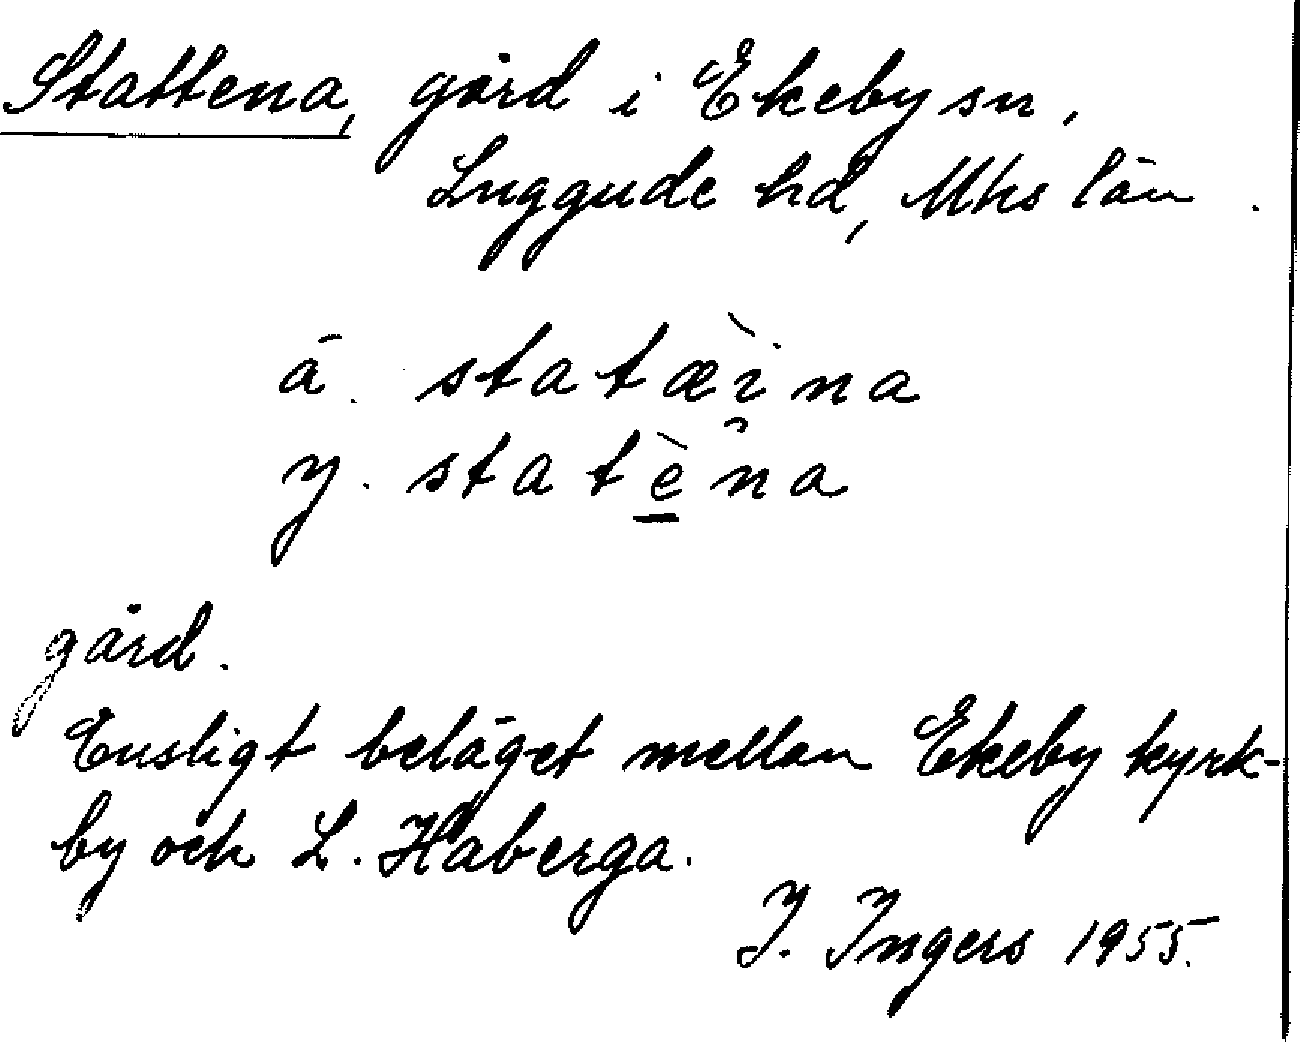 Stattena, gård i Ekeby sn,
Luggude hd, Mhs län.
ä. statæ̀ina
y. statè̱na
gård.
Ensligt beläget mellan Ekeby kyrk-
by och L. Haberga.
I. Ingers 1955.